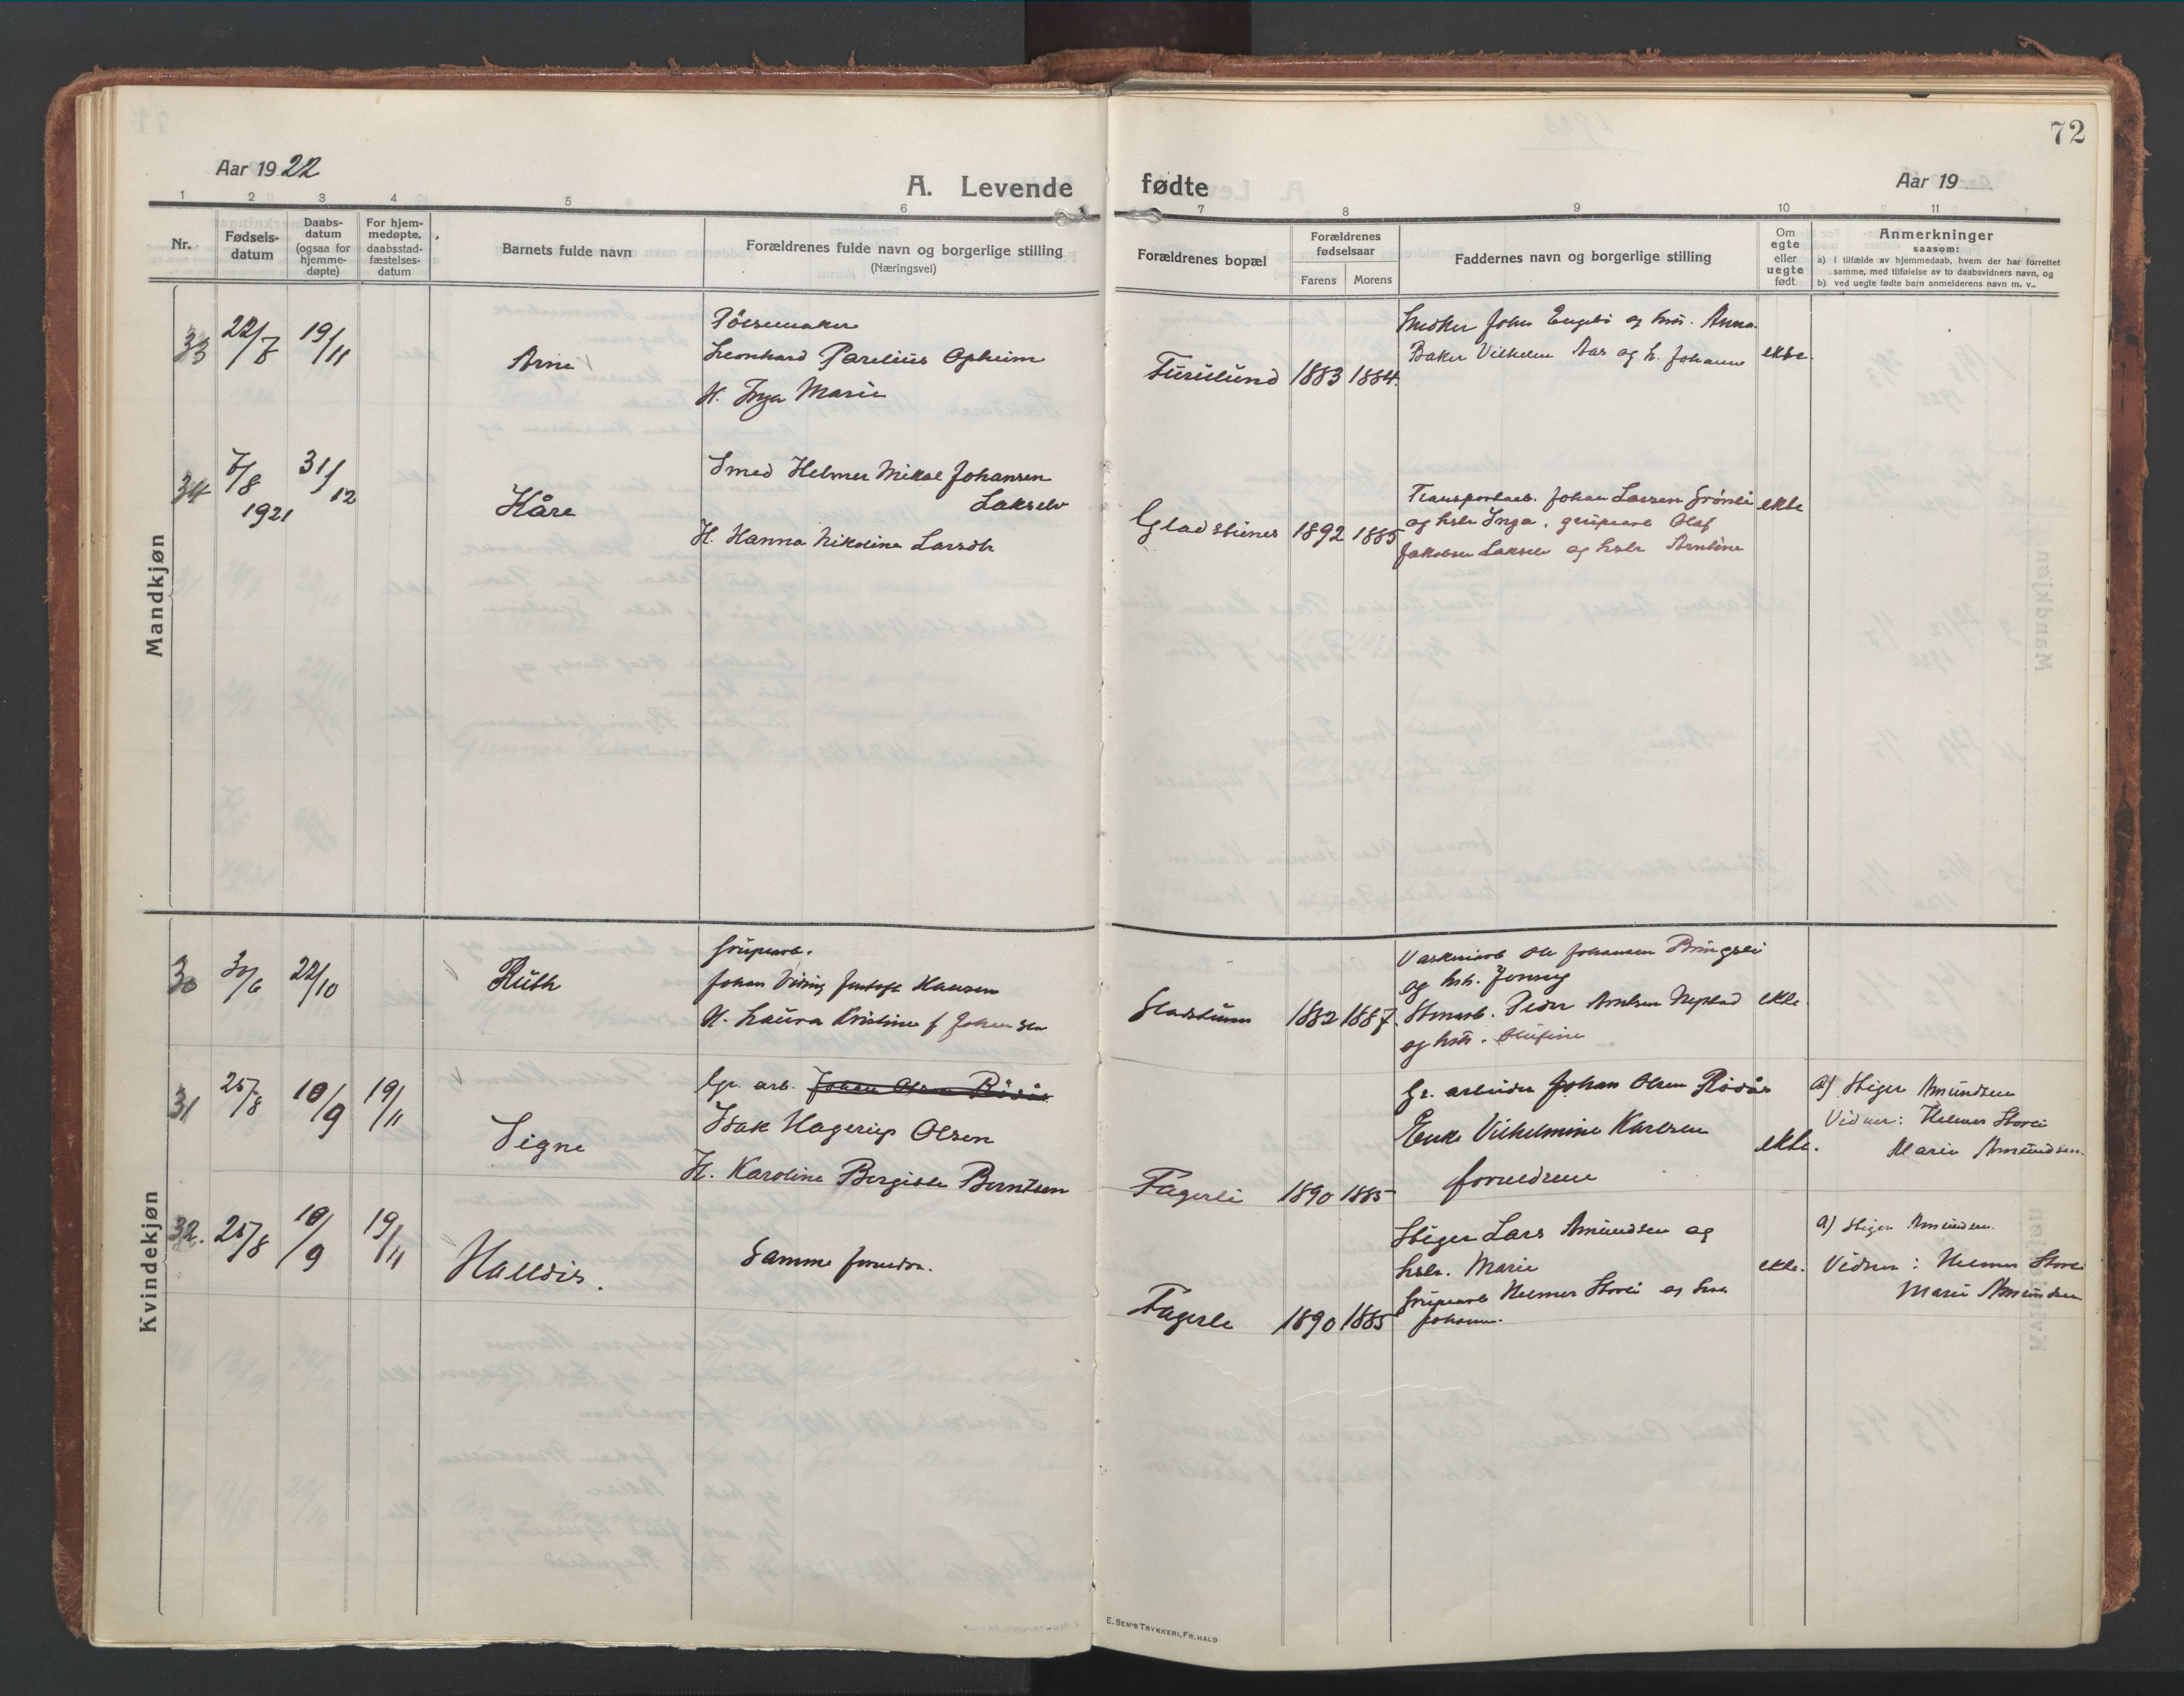 72
Aar 1922
A. Levende
fødte
Aar 19
1 2 3 4 5 6
7 8 9 10 11
Nr.
Fødsels-
datum
Daabs-
datum
(ogsaa for
hjemme-
døpte)
For hjem-
medøpte,
daabsstad-
fæstelses-
datum
Barnets fulde navn
Forældrenes fulde navn og borgerlige stilling
(Næringsvei)
Forældrenes bopæl
Forældrenes
fødselsaar
Farens
Morens
Faddernes navn og borgerlige stilling
Om
egte
eller
uegte
født
Anmerkninger
saasom:
a) I tilfælde av hjemmedaab, hvem der har forrettet
samme, med tilføielse av to daabsvidners navn, og
b) ved uegte fødte barn anmelderens navn m. v..
Mandkjøn
33 22/7 19/11
Arne
Pölsemaker
Leonhard Parelius Opheim
H. Inga Marie
Furulund 1883 1884
Snedker Johs Engebø og hus. Anna
Baker Vilhelm Aas og h. Johanne ekte.
34 7/8 31/12
1921
Kåre
Smed Helmer Mikal Johansen
Lakselv
H. Hanna Nikoline Larsdtr
Gladstienes 1892 1885
Transportarb. Johan Larsen Grönli ekte
og hstr Inga. grubearb Olaf
Jakobsen Lakselv og hstr Arntine
Kvindekjøn
30 30/6 22/10
Ruth
Grubearb.
Johan Hansen
H. Laura Kristine f Johansen
1882 1887.
Ole Johansen Bringsli
og hstr. Jenny
Peder Arntsen ekte.
og hstr. Olufine
31 25/8 10/9 19/11
Signe
Gr. arb. Johan Olsen Rödås
Isak Hagerup Olsen
H. Karoline Bergitte Berntsen
Fagerli 1890 1885
Gr. arbeider Johan Olsen Rödås
Enke Vilhelmine Karlsen
ekte.
foreldrene
a) Stiger Amundsen
Vidner: Helmer Storli
Marie Amundsen
32. 25/8 10/9 19/11
Halldis.
Samme foreldre.
Fagerli 1890 1885
Stiger Lars Amundsen og
hstr. Marie ekte.
Grubearb Helmer Storli og hus
Johanne.
a) Stiger Amundsen.
Vidner: Helmer Storli
Marie Amundsen
E. SEM'S TRYKKERI, FR.HALD